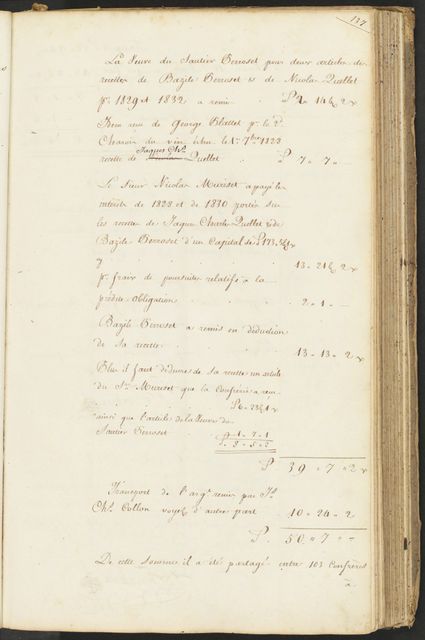 137
La Veuve du Sautier Perroset pour deux articles de
recettes de Bazile Perroset & de Nicolas Quellet
pr. 1829 et 1832 a remis 14 2
Item reçu de George Blattet pr. le
du vin échu le 1r. 7bre 1828
Jaques Chs.
recette de Quellet 7 " 7 "
Le Sieur Nicolas Muriset a payé les
intérêts de 1828 et de 1830 portés sur
les recettes de Jaques Charles Quellet & de
Bazile Perroset d'un Capital de
13 - 21 2
pr. frais de poursuites relatifs à la
predite obligation 2 - 1 -
Bazile Perroset a remis en déduction
de sa recette 13 - 13 - 2
Plus il faut déduire de sa recette un article
du Sr. Muriset que la Confrérie a reçu
ainsi que l'article de la Veuve du
Sautier Perroset 1 - 7 - 1
39 " 7 " 2
Transport de l'argt. remis par Js.
Chs. Collon voyez d'autre part 10 - 24 - 2
50 " 7 " -
De cette somme il a été partagé entre 103 Confrères
à